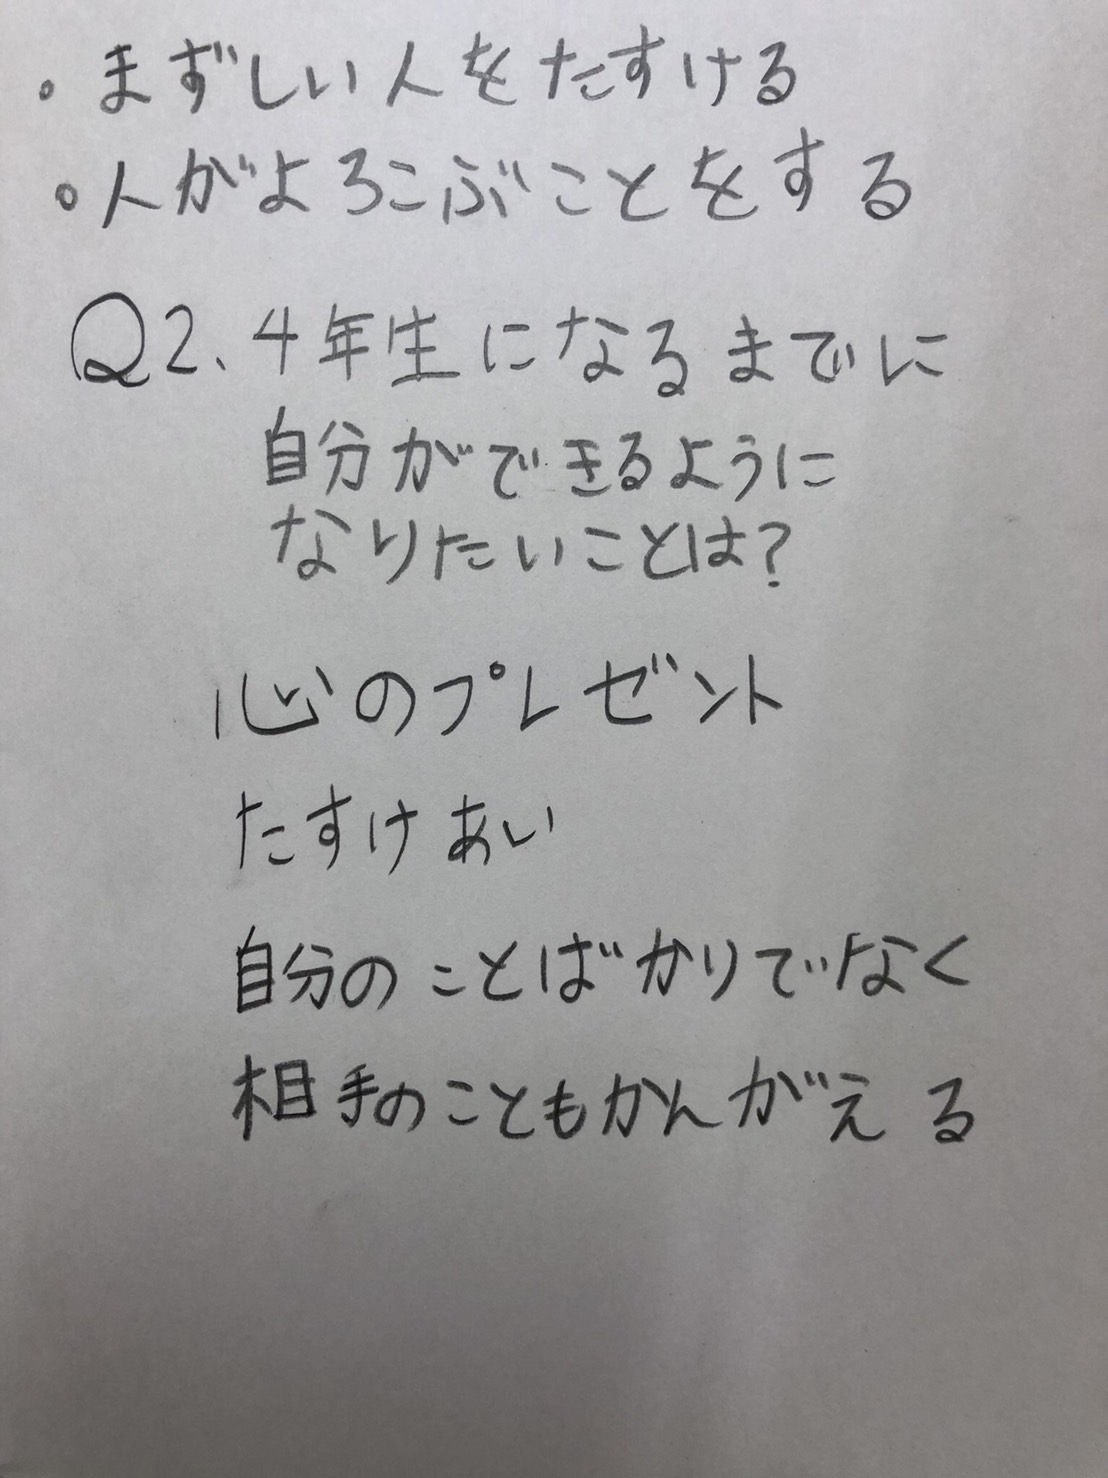 ・まずしい人をたすける
・人がよろこぶことをする
Q2、4年生になるまでに
自分ができるように
なりたいことは?
心のプレゼント
たすけあい
自分のことばかりでなく
相手のこともかんがえる